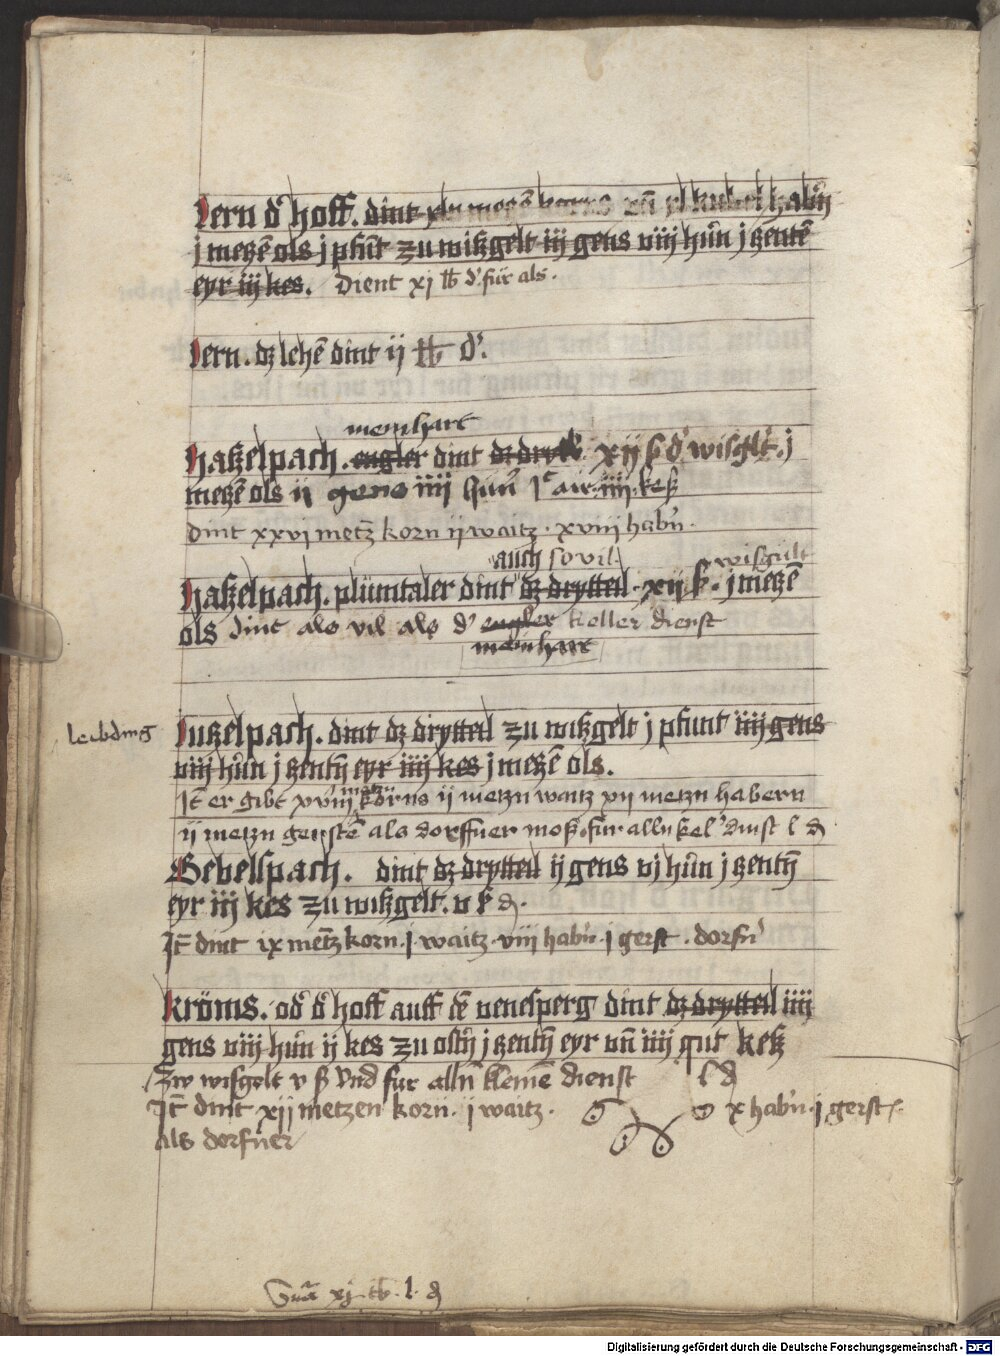 Iern d hoff. dint xlv metzē korns vn̄ xl kubel habn̄
j metzē ols j pfūt zu wißgelt iij gens viij hūn j zentē
eyr iij kes. dient xj lb d für als.
Iern. dz lehē dint ij lb d.
meinhart
Haßelpach. engler dint dz dryttl xij ß d wisglt. j
metzē ols ij gens iiij hūn j c air. iiij. keß
dint xxvj metz korn ij waitz. xviij habn̄.
auch so vil wißgült
Haßelpach. plümtaler dint dz drytteil. xij ß. j metzē
ols dint als vil als d engler keller dienst
meinhart
leibding
Iußelpach. dint dz drytteil zu wißgelt j pfunt iiij gens
viij hūn j zentn̄ eyr iiij kes j metzē ols.
metzn
It er gibt xviij korns ij metzn waitz xij metzn habern
ij metzn gerstē als dorffner moß. für alln kel dinst l d
Gebelspach. dint dz drytteil ij gens vj hūn j zentn̄
eyr iij kes zu wißgelt. v ß d.
It dint ix metz korn. j. waitz. viij habn̄. j gerst. dorfn̄
Kröms. od d hoff auff dē venesperg dint dz drytteil iiij
gens viij hūn ij kes zu ostn̄ j zentn̄ eyr vn̄ iiij gut keß
Zw wisgelt v ß Vnd fur alln̄ klenē dienst l d
It dint xij metzen korn. ij waitz. x habn̄. j gerst
als dorfner
Sūa xj. lb. l. d
Digitalisierung gefördert durch die Deutsche Forschungsgemeinschaft - DFG